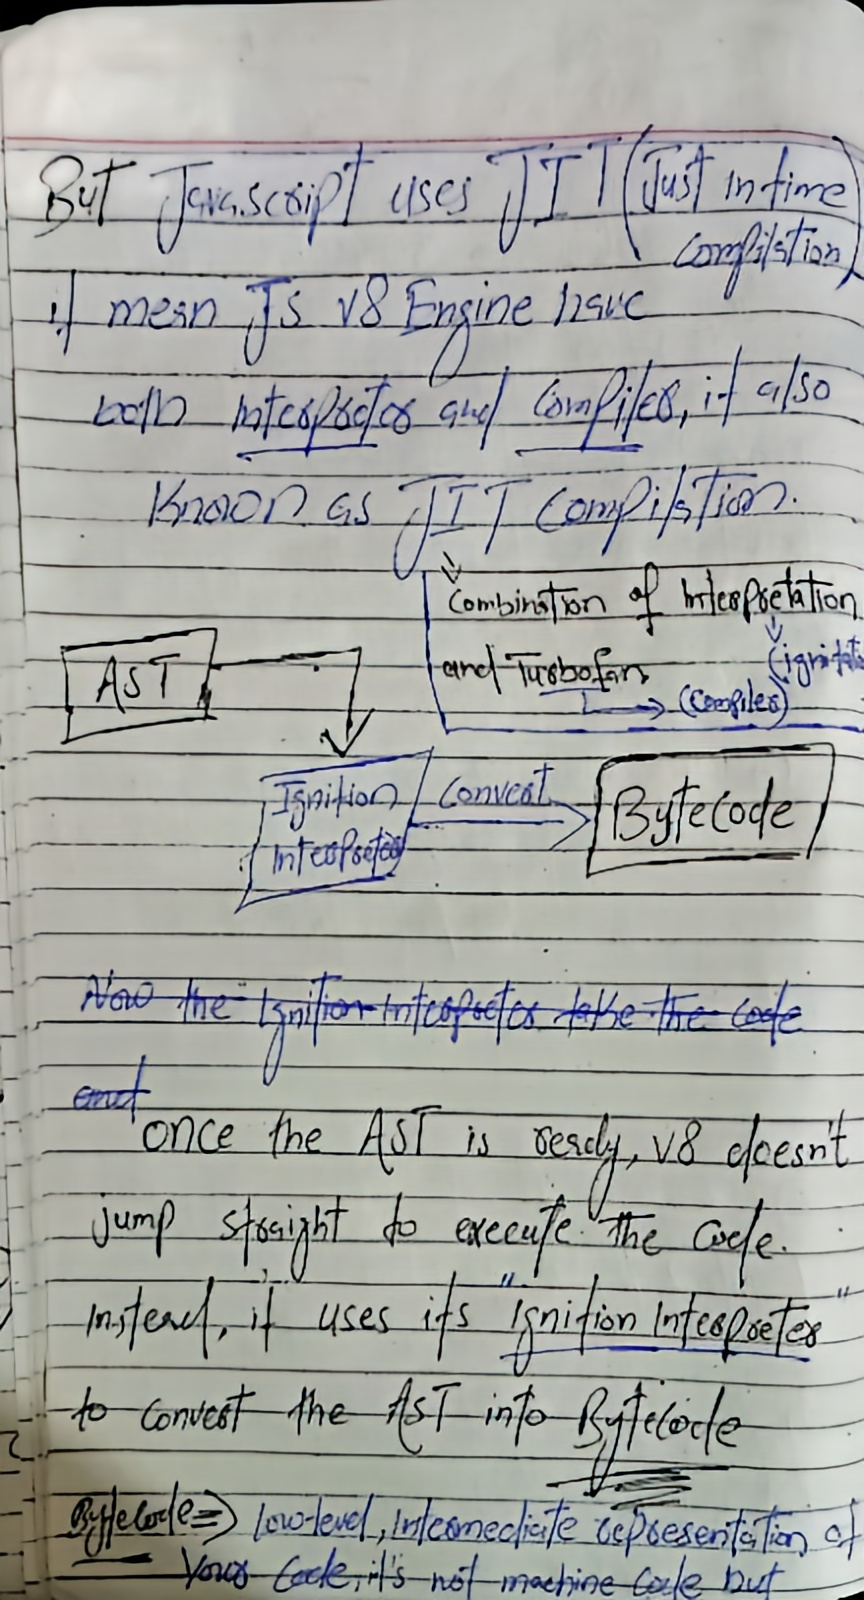 But Javascript uses JIT (Just in time
Compilation)
it mean Js v8 Engine have
both Interpreter and Compiler, it also
Known as JIT Compilation.
Combination of Interpretation
and Turbofan
(Compiler)
AST
Ignition
Interpreter
Convert
Bytecode
Now the Ignition Interpreter take the code
and
once the AST is ready, v8 doesn't
jump straight to execute the code.
Instead, it uses its "Ignition Interpreter"
to convert the AST into Bytecode
Bytecode => low-level, intermediate representation of
Your Code, it's not machine code but